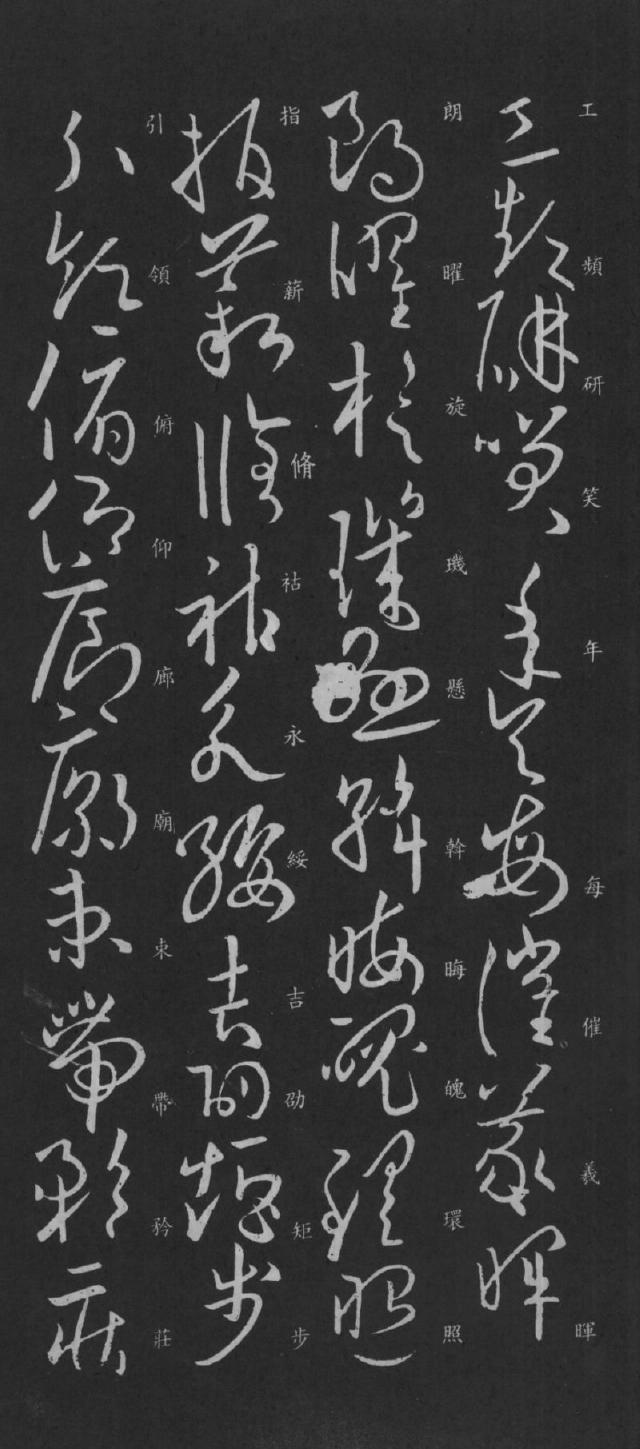 工頻研笑年每催羲暉
工頻研笑年矢每催羲暉
朗曜旋璣懸斡晦魄環照
朗曜旋璣懸斡晦魄環照
指薪脩祜永綏吉劭矩步
指薪脩祜永綏吉劭矩步
引領俯仰廊廟束帶矜莊
引領俯仰廊廟束帶矜莊